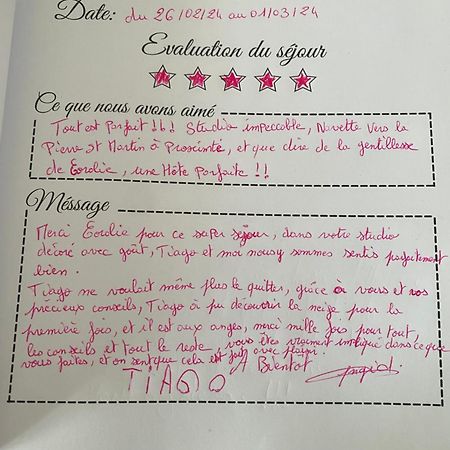 Date: du 26/02/24 au 01/03/24
Evaluation du séjour
Ce que nous avons aimé
Tout est Parfait !!! Studio impeccable, Navette vers la
Pierre St Martin à Proximité, et que dire de la gentillesse
de Coralie, une Hôte Parfaite !!
Méssage
Merci Coralie pour ce super séjour, dans votre studio
décoré avec goût, Tiago et moi nousy sommes sentis parfaitement
bien.
Tiago ne voulait même plus le quitter, grâce à vous et vos
précieux conseils, Tiago à pu découvrir la neige pour la
première fois, et il est aux anges, merci mille fois pour tout,
les conseils et tout le reste, vous êtes vraiment impliqué dans ce que
vous faites, et on sent que cela est fait avec plaisir.
A Bientot
TIAGO